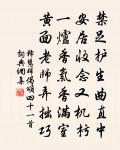 禁足护生曲直中
安居收念又机杼
一炉香气香满室
黄面老师弄拙巧
释慧晖偈颂四十一首
词典网集